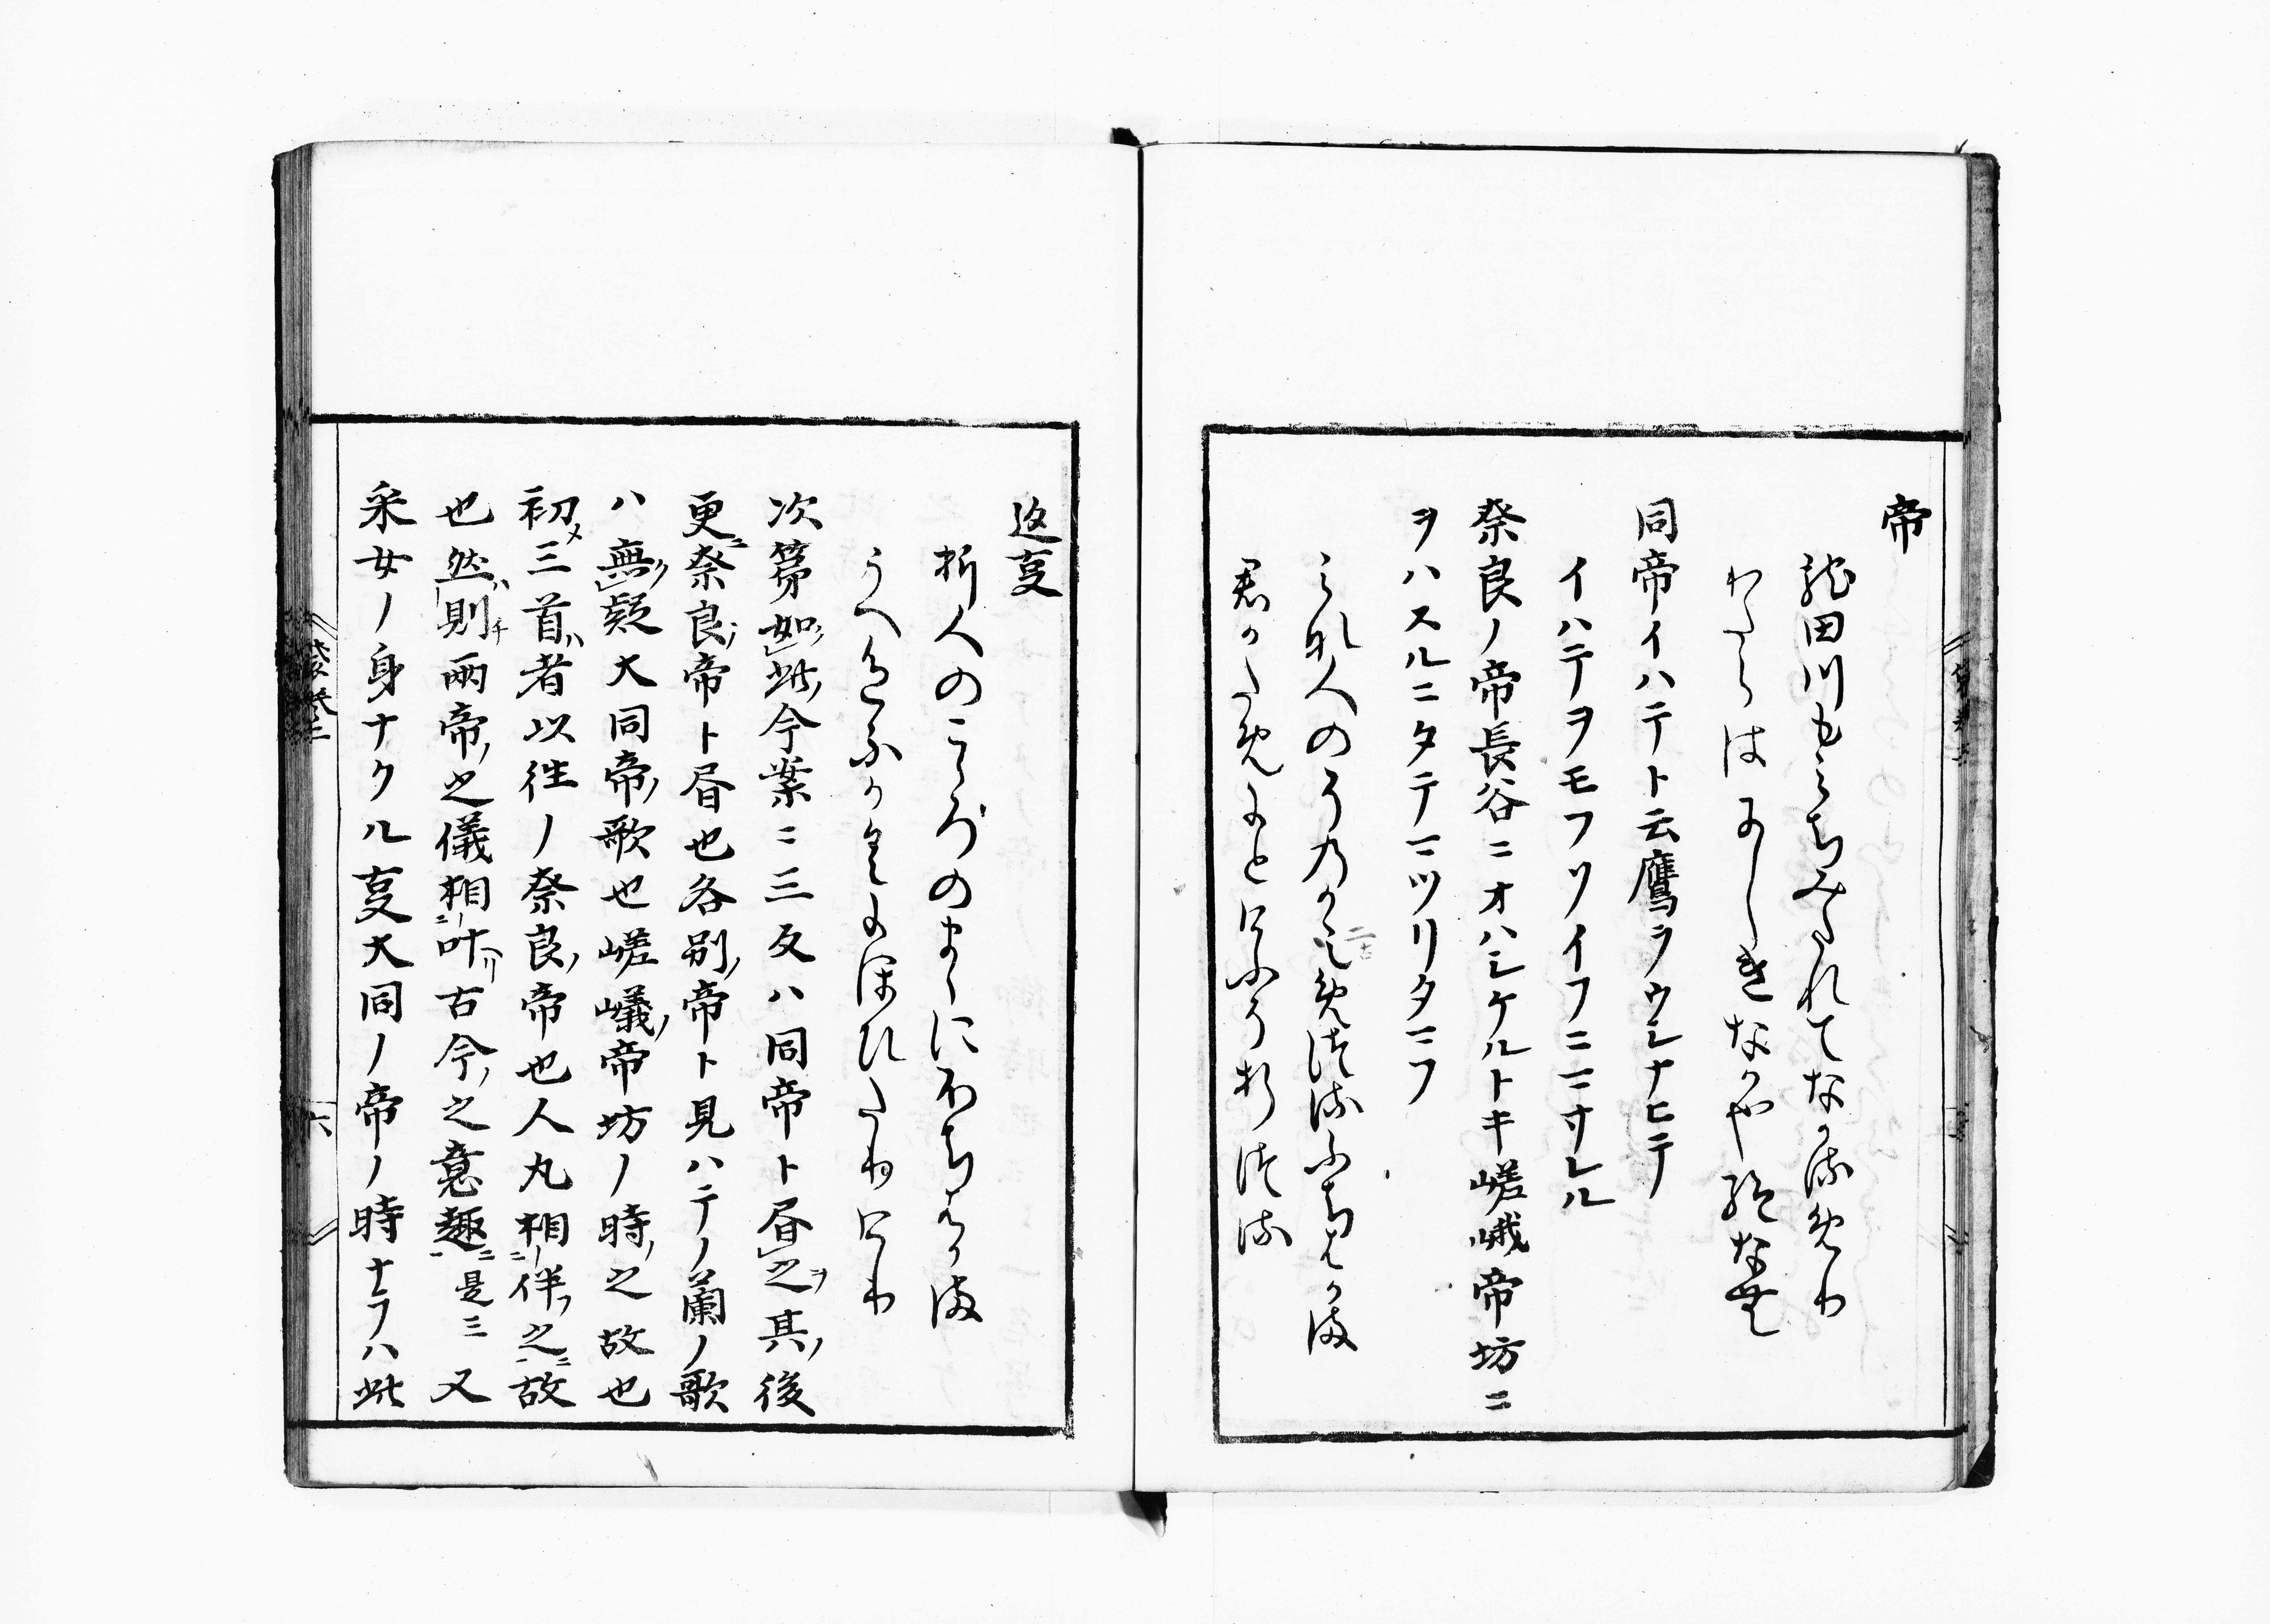 帝
龍田川もみちみたれてなかるめり
わたらはにしきなかや絶なむ
同帝イハテト云鷹ヲウシナヒテ
イハテヲモフソイフニマサレル
奈良ノ帝長谷ニオハシケルトキ嵯峨帝坊ニ
ヲハスルニタテマツリタマフ
みな人のそのかにめつるふちはかま
君かためにと口ふそ折つる
返事
折人のこゝろのまゝにふちはかま
うへ色ふかくにほひたり口り
次第如此今案ニ三反ハ同帝ト昼之其後
更奈良帝ト昼也各別帝ト見ハテノ蘭ノ歌
ハ無疑大同帝歌也嵯峨帝坊ノ時之故也
初三首者以往ノ奈良帝也人丸相伴之故
也然則両帝之儀相叶古今之意趣是三又
采女ノ身ナクル事大同ノ帝ノ時ナラハ此
六